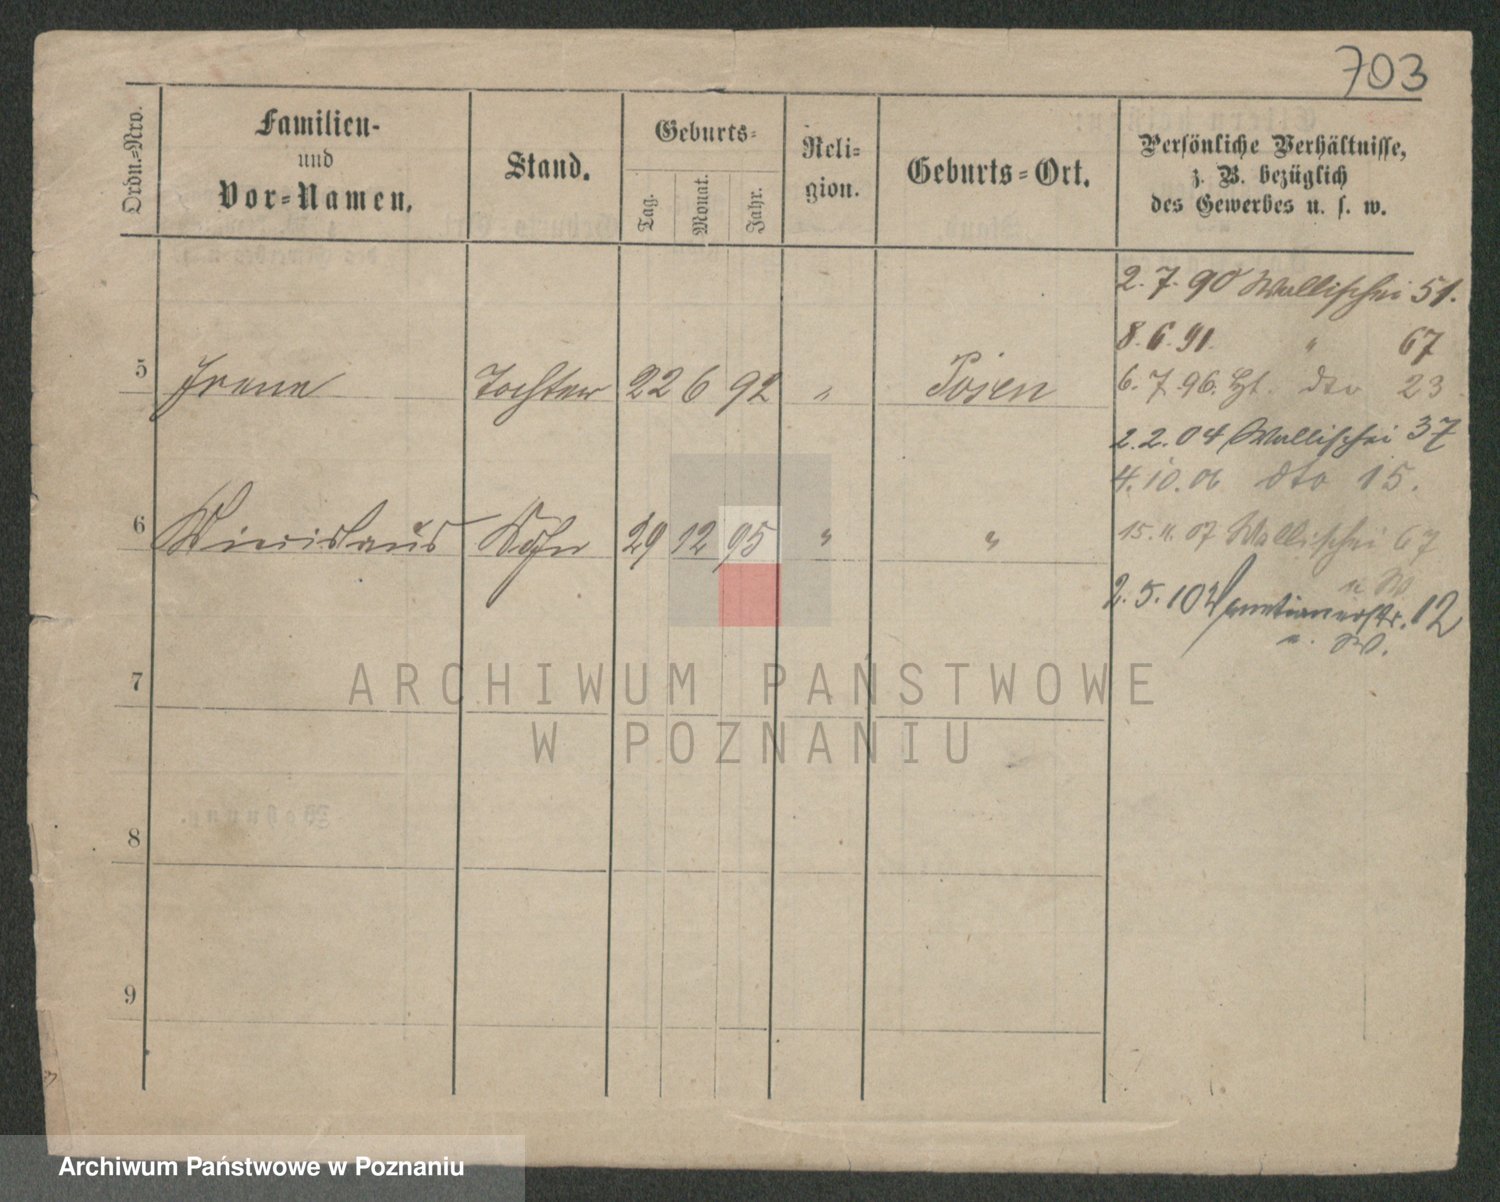 703
Ordn.-Nro.
Familien-
und
Vor-Namen.
Stand.
Geburts-
Tag.
Monat.
Jahr.
Reli-
gion.
Geburts-Ort.
Persönliche Verhältnisse,
z. B. bezüglich
des Gewerbes u. s. w.
2. 7. 90 Wallischei 51.
8. 6. 91. " 67
5 Irene Tochter 22 6 92 " Posen
6. 7. 96. dto 23
2. 2. 04 Wallischei 37
4. 10. 06 dto 15.
6 Sohn 29 12 95 " "
15. 11. 07 Wallischei 67
u W
2. 5. 10 Venetianerstr. 12
u. W.
7
8
9
ARCHIWUM PAŃSTWOWE
W POZNANIU
Archiwum Państwowe w Poznaniu